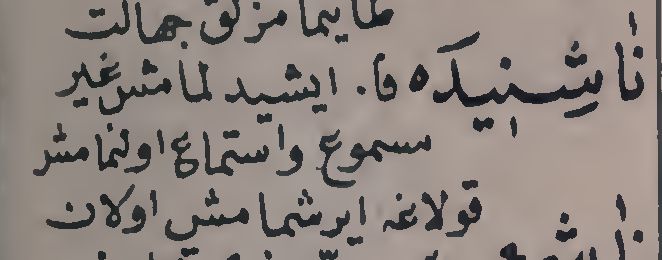 طانیمامزلق جهالت
ناشنیده فا. ایشیدلمامش غیر
مسموع واستماع اولنمامش
قولاغه ایرشمامش اولان